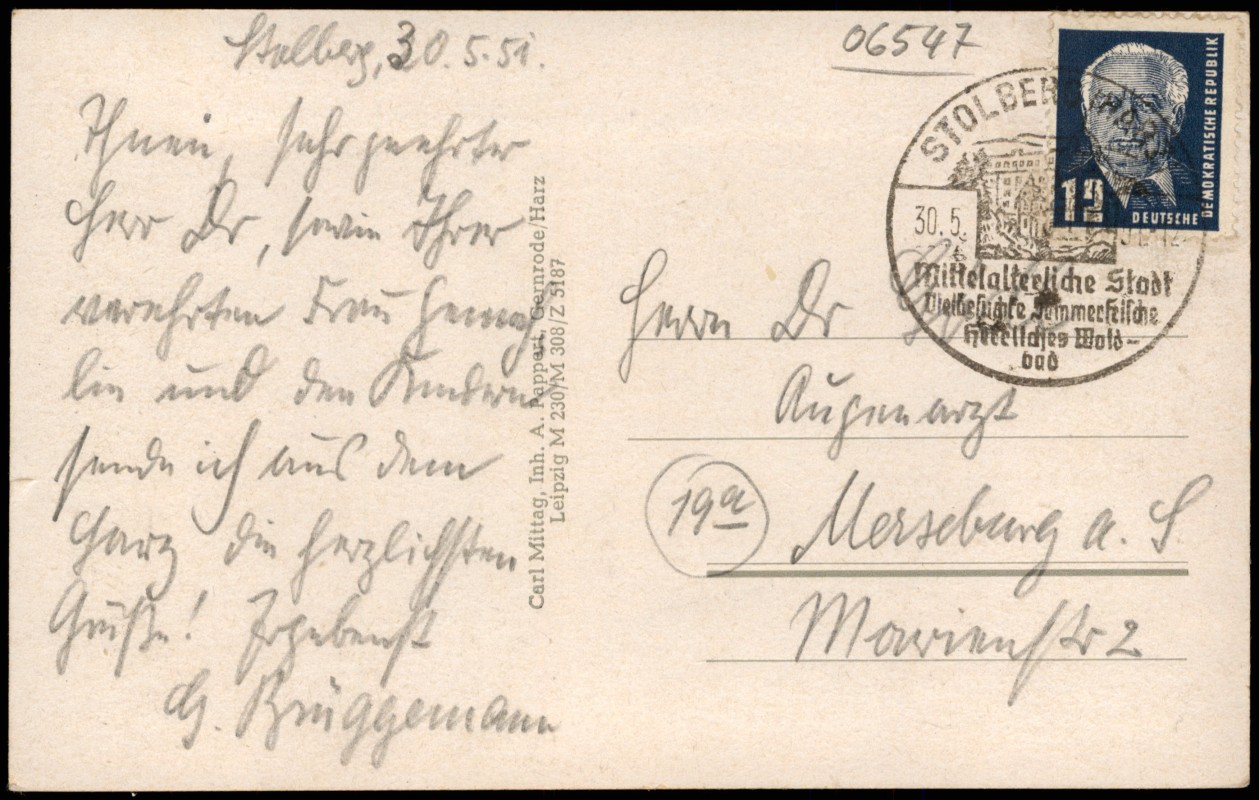 Stolberg, 30.5.51.
Ihnen, sehr geehrter
Herr Dr, sowie Ihrer
verehrten Frau Gemah
lin und den Kindern
sende ich aus dem
Harz die herzlichsten
Grüße! Ergebenst
G. Brüggemann
Carl Mittag, Inh. A. Pappert, Gernrode/Harz
Leipzig M 230/M 308/Z 5187
06547
DEUTSCHE
DEMOKRATISCHE REPUBLIK
12
STOLBERG (HARZ)
30.5.
Mittelalterliche Stadt
Vielbesuchte Sommerfrische
Herrliches Wald-
bad
Herrn Dr
Augenarzt
19a
Merseburg a. S
Marienstr 2